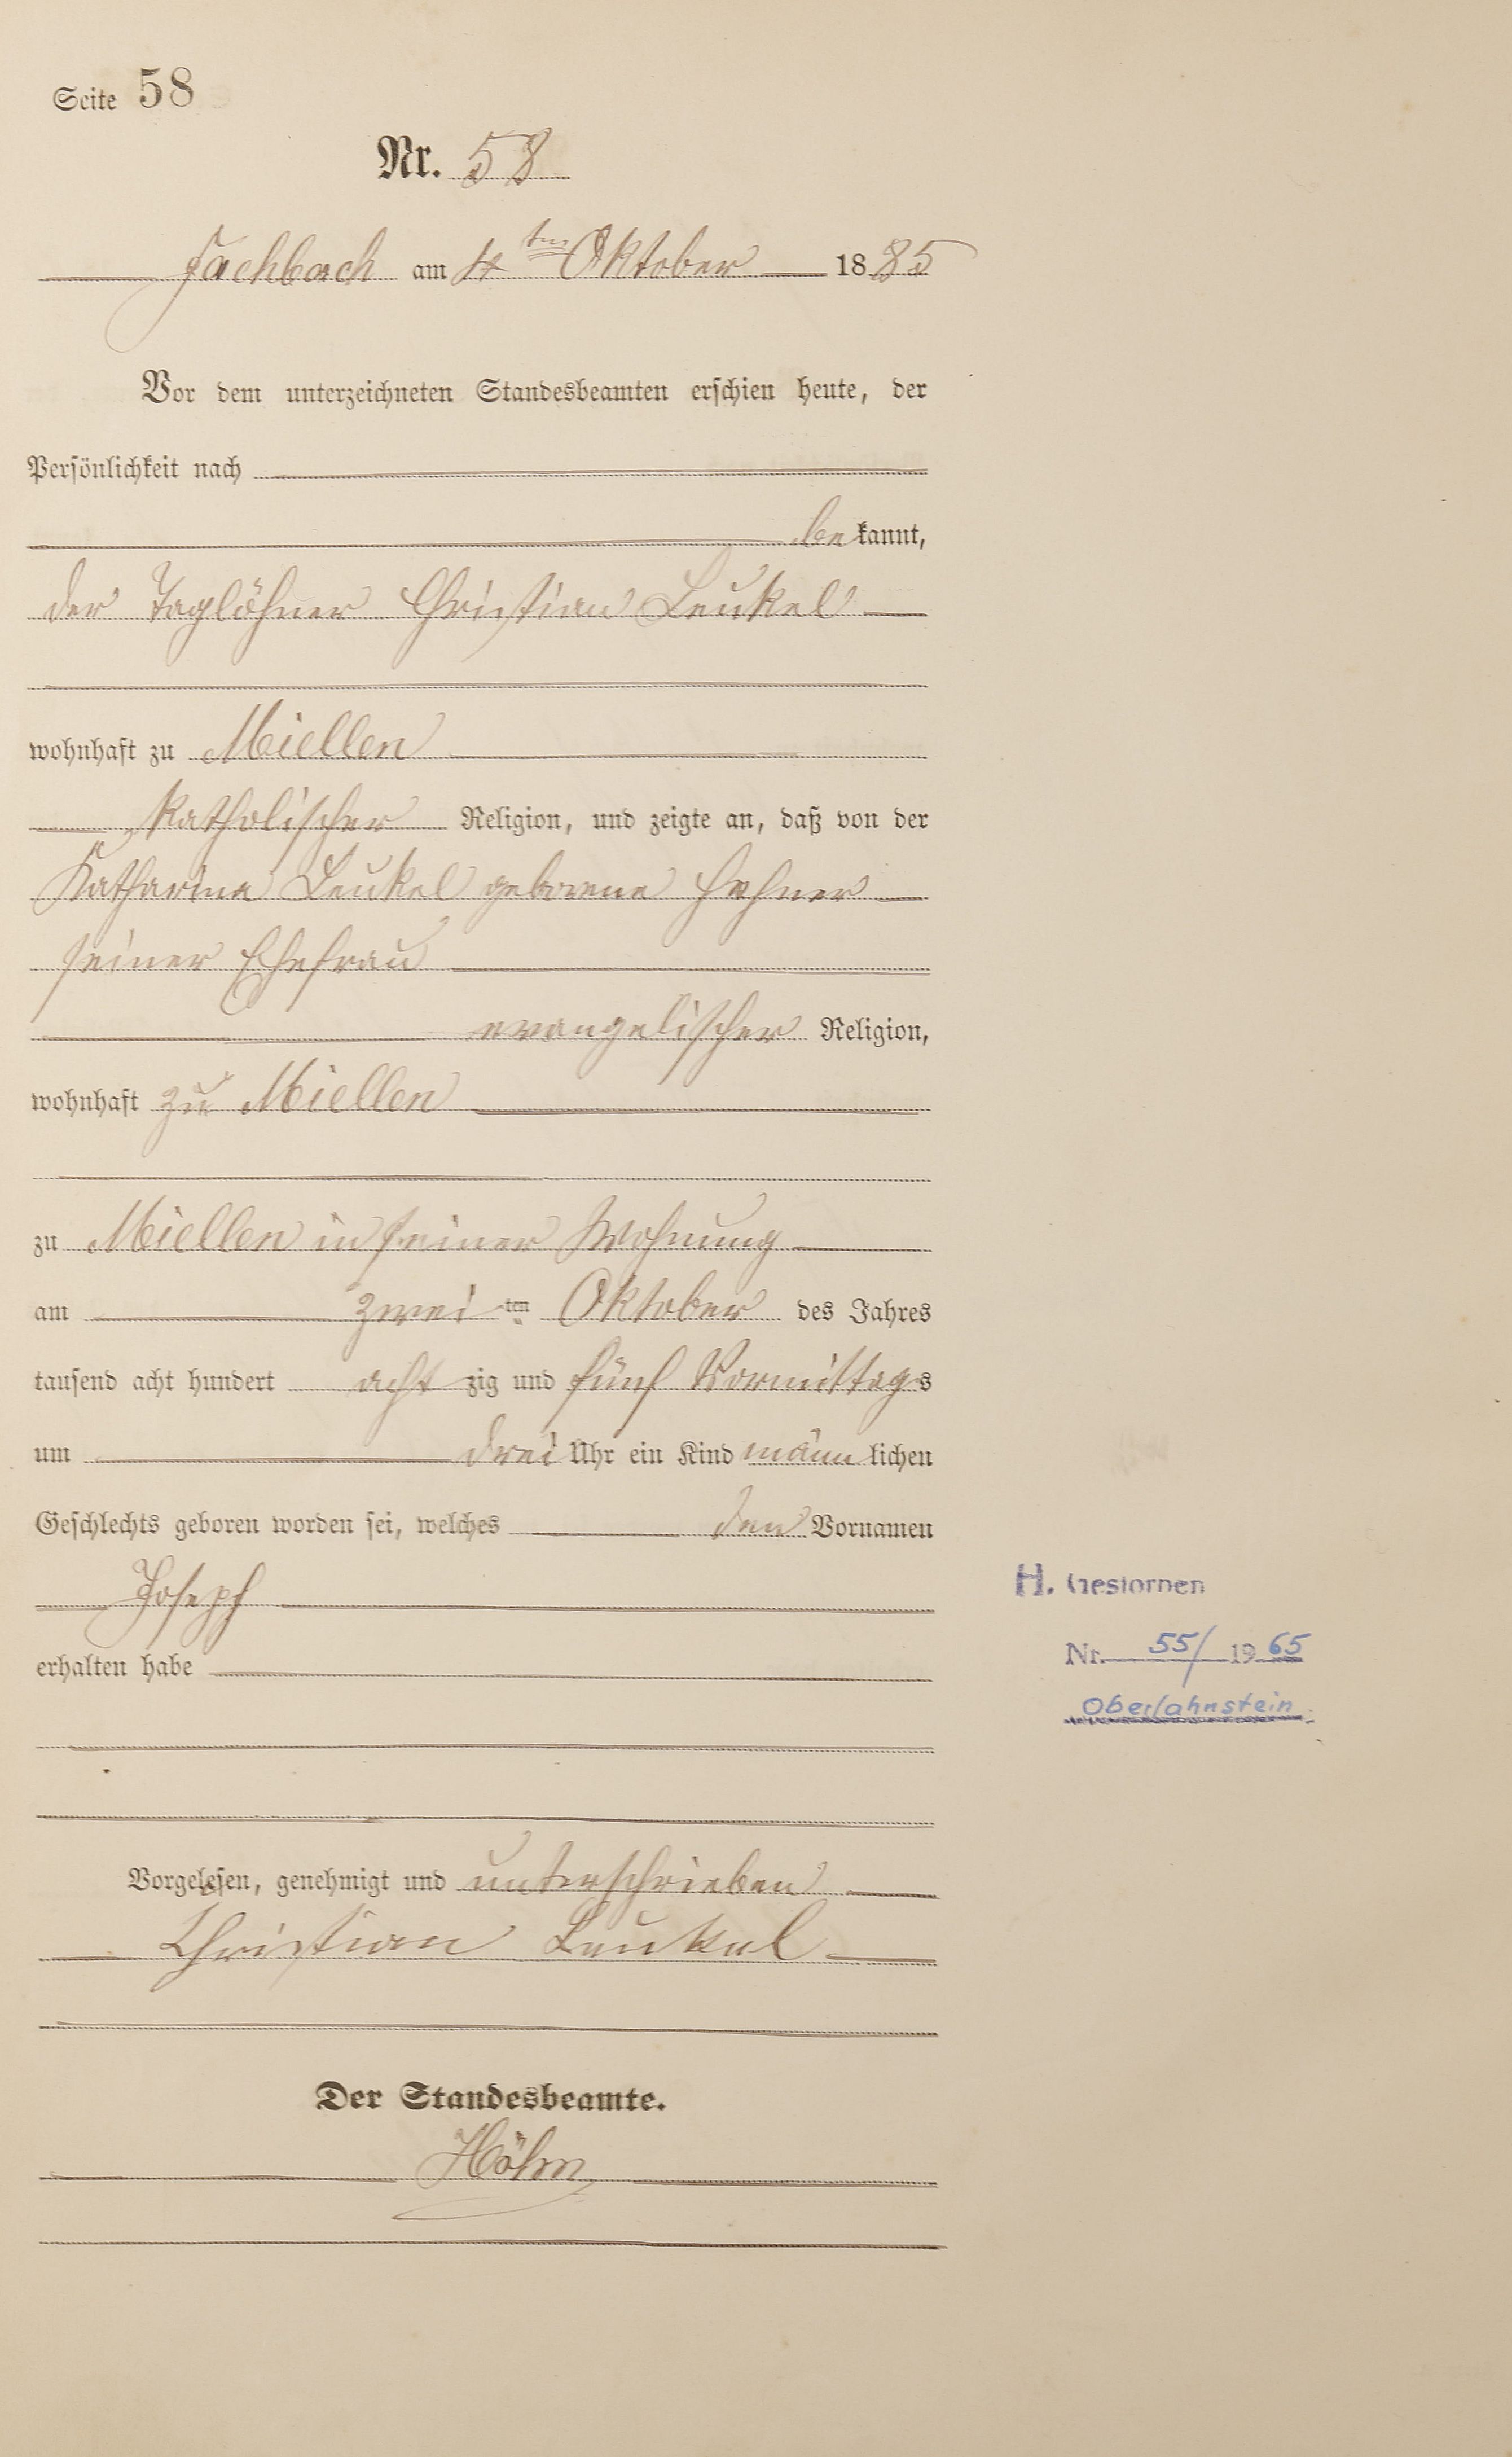 Seite 58
Nr. 58
Fachbach am 4ten Oktober 1885
Vor dem unterzeichneten Standesbeamten erschien heute, der
Persönlichkeit nach
bekannt,
der Taglöhner Christian Leukel
wohnhaft zu Miellen
katholischer Religion, und zeigte an, daß von der
Katharina Leukel geborene Hehner
seiner Ehefrau
evangelischer Religion,
wohnhaft zu Miellen
zu Miellen in seiner Wohnung
am zweiten Oktober des Jahres
tausend acht hundert achtzig und fünf Vormittags
um drei Uhr ein Kind männlichen
Geschlechts geboren worden sei, welches den Vornamen
Joseph
erhalten habe
H. Gestorben
Nr. 55/1965
Oberlahnstein
Vorgelesen, genehmigt und unterschrieben
Christian Leukel
Der Standesbeamte.
Höhn